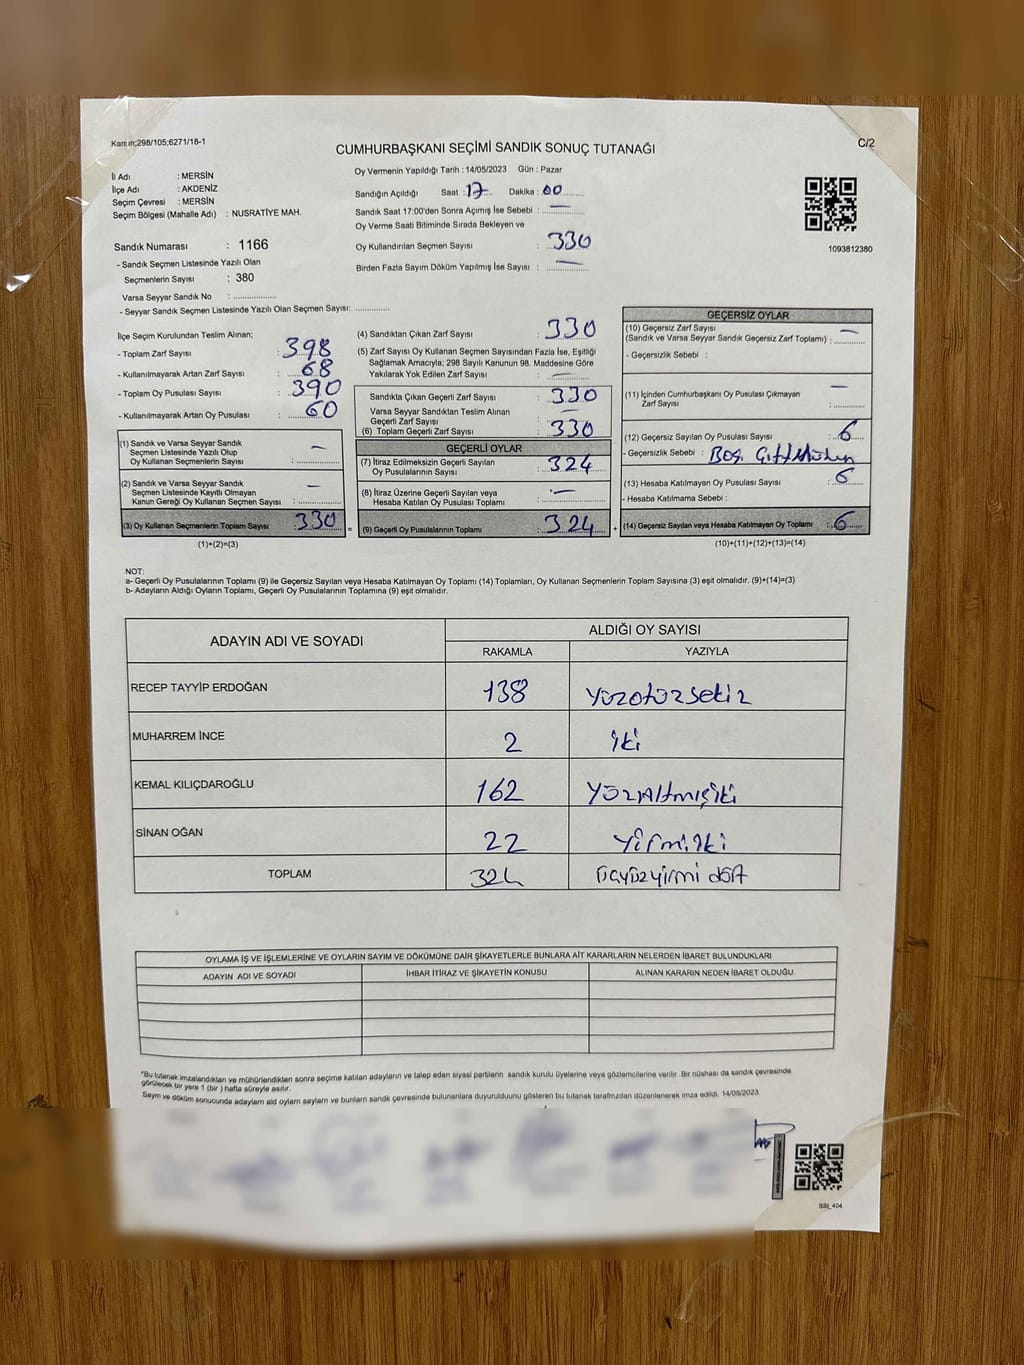 Kanun;298/105;6271/18-1
C/2
CUMHURBAŞKANI SEÇİMİ SANDIK SONUÇ TUTANAĞI
İl Adı : MERSİN
İlçe Adı : AKDENİZ
Seçim Çevresi : MERSİN
Seçim Bölgesi (Mahalle Adı) : NUSRATİYE MAH.
Sandık Numarası : 1166
- Sandık Seçmen Listesinde Yazılı Olan
Seçmenlerin Sayısı : 380
Varsa Seyyar Sandık No :
- Seyyar Sandık Seçmen Listesinde Yazılı Olan Seçmen Sayısı:
Oy Vermenin Yapıldığı Tarih : 14/05/2023 Gün : Pazar
Sandığın Açıldığı Saat : 17 Dakika : 00
Sandık Saat 17:00'den Sonra Açımış İse Sebebi : —
Oy Verme Saati Bitiminde Sırada Bekleyen ve
Oy Kullandırılan Seçmen Sayısı : 330
Birden Fazla Sayım Döküm Yapılmış İse Sayısı : —
1093812380
İlçe Seçim Kurulundan Teslim Alınan;
- Toplam Zarf Sayısı : 398
- Kullanılmayarak Artan Zarf Sayısı : 68
- Toplam Oy Pusulası Sayısı : 390
- Kullanılmayarak Artan Oy Pusulası : 60
(1) Sandık ve Varsa Seyyar Sandık
Seçmen Listesinde Yazılı Olup
Oy Kullanan Seçmenlerin Sayısı : —
(2) Sandık ve Varsa Seyyar Sandık
Seçmen Listesinde Kayıtlı Olmayan
Kanun Gereği Oy Kullanan Seçmen Sayısı : —
(3) Oy Kullanan Seçmenlerin Toplam Sayısı : 330
(1)+(2)=(3)
=
(4) Sandıktan Çıkan Zarf Sayısı : 330
(5) Zarf Sayısı Oy Kullanan Seçmen Sayısından Fazla İse, Eşitliği
Sağlamak Amacıyla; 298 Sayılı Kanunun 98. Maddesine Göre
Yakılarak Yok Edilen Zarf Sayısı : —
Sandıkta Çıkan Geçerli Zarf Sayısı : 330
Varsa Seyyar Sandıktan Teslim Alınan
Geçerli Zarf Sayısı : —
(6) Toplam Geçerli Zarf Sayısı : 330
GEÇERLİ OYLAR
(7) İtiraz Edilmeksizin Geçerli Sayılan
Oy Pusulalarının Sayısı : 324
(8) İtiraz Üzerine Geçerli Sayılan veya
Hesaba Katılan Oy Pusulası Toplamı : —
(9) Geçerli Oy Pusulalarının Toplamı : 324
+
GEÇERSİZ OYLAR
(10) Geçersiz Zarf Sayısı
(Sandık ve Varsa Seyyar Sandık Geçersiz Zarf Toplamı) : —
- Geçersizlik Sebebi :
(11) İçinden Cumhurbaşkanı Oy Pusulası Çıkmayan
Zarf Sayısı : —
(12) Geçersiz Sayılan Oy Pusulası Sayısı : 6
- Geçersizlik Sebebi : Boş
(13) Hesaba Katılmayan Oy Pusulası Sayısı : 6
- Hesaba Katılmama Sebebi :
(14) Geçersiz Sayılan veya Hesaba Katılmayan Oy Toplamı : 6
(10)+(11)+(12)+(13)=(14)
NOT:
a- Geçerli Oy Pusulalarının Toplamı (9) ile Geçersiz Sayılan veya Hesaba Katılmayan Oy Toplamı (14) Toplamları, Oy Kullanan Seçmenlerin Toplam Sayısına (3) eşit olmalıdır. (9)+(14)=(3)
b- Adayların Aldığı Oyların Toplamı, Geçerli Oy Pusulalarının Toplamına (9) eşit olmalıdır.
ADAYIN ADI VE SOYADI ALDIĞI OY SAYISI
RAKAMLA YAZIYLA
RECEP TAYYİP ERDOĞAN 138 Yüzotuzsekiz
MUHARREM İNCE 2 iki
KEMAL KILIÇDAROĞLU 162 YüzAltmışiki
SİNAN OĞAN 22 Yirmiiki
TOPLAM 324 üçyüzyirmi dört
OYLAMA İŞ VE İŞLEMLERİNE VE OYLARIN SAYIM VE DÖKÜMÜNE DAİR ŞİKAYETLERLE BUNLARA AİT KARARLARIN NELERDEN İBARET BULUNDUKLARI
ADAYIN ADI VE SOYADI İHBAR İTİRAZ VE ŞİKAYETİN KONUSU ALINAN KARARIN NEDEN İBARET OLDUĞU
*Bu tutanak imzalandıktan ve mühürlendikten sonra seçime katılan adayların ve talep eden siyasi partilerin sandık kurulu üyelerine veya gözlemcilerine verilir .Bir nüshası da sandık çevresinde
görülecek bir yere 1 (bir ) hafta süreyle asılır.
Sayım ve döküm sonucunda adayların aldı oyların sayların ve bunların sandk çevresinde bulunanlara duyurulduunu gösteren bu tutanak tarafmzdan düzenlenerek imza edildi. 14/05/2023
SSI_404